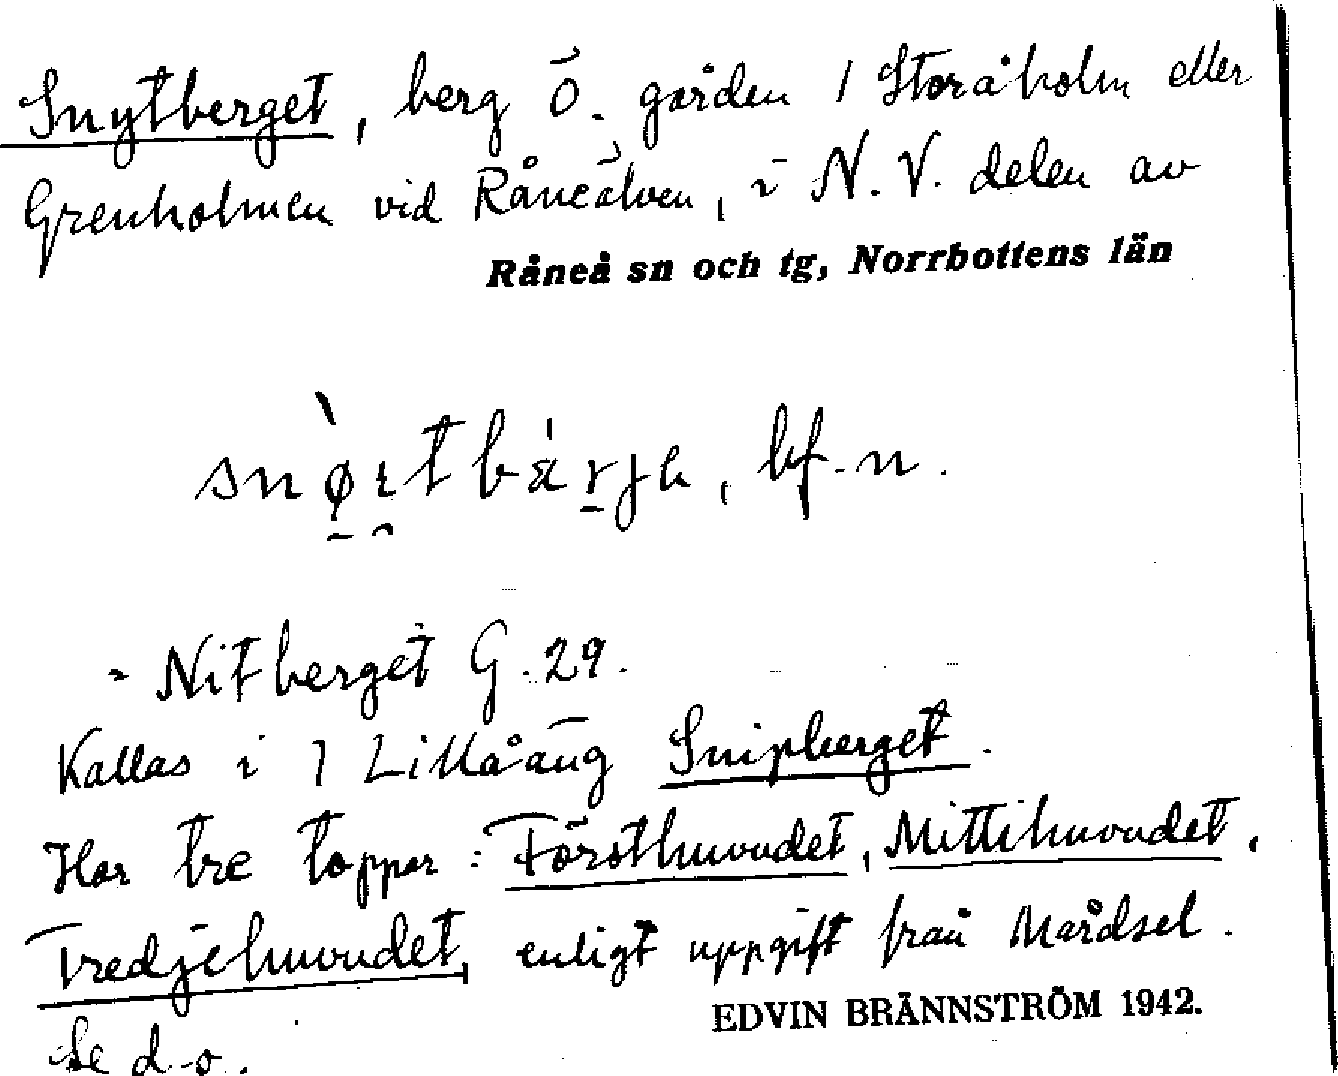 Snytberget, berg Ö. gården 1 Storåholm eller
Grenholmen vid Råneälven, i N. V. delen av
Råneå sn och tg, Norrbottens län
bf. n.
= Nitberget G. 29.
Kallas i 1 Lillåäng Snipberget.
Har tre toppar: Församhuvudet, Mittihuvudet,
Tredjehuvudet, enligt uppgift från Mårdsel.
Se d. o.
EDVIN BRÄNNSTRÖM 1942.